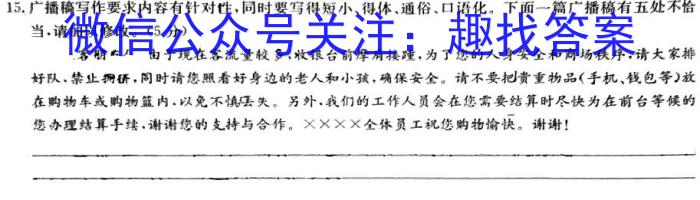 15.广播稿写作要求内容有针对性,同时要写得短小、得体、通俗、口语化。下面一篇广播稿有五处不恰
当,请 修改。(5分)
微信公众号关注：趣找答案
客朋 由于现在客流量较多,收银台前摩肩接踵,为了您的人身安全和商场秩序,请大家排
好队、禁止拥挤,同时请您照看好身边的老人和小孩,确保安全。请不要把贵重物品(手机、钱包等)放
在购物车或购物篮内,以免不慎丢失。另外,我们的工作人员会在您需要结算时尽快为在前台等候的
您办理结算手续,谢谢您的支持与合作。××××全体员工祝您购物愉快。谢谢!